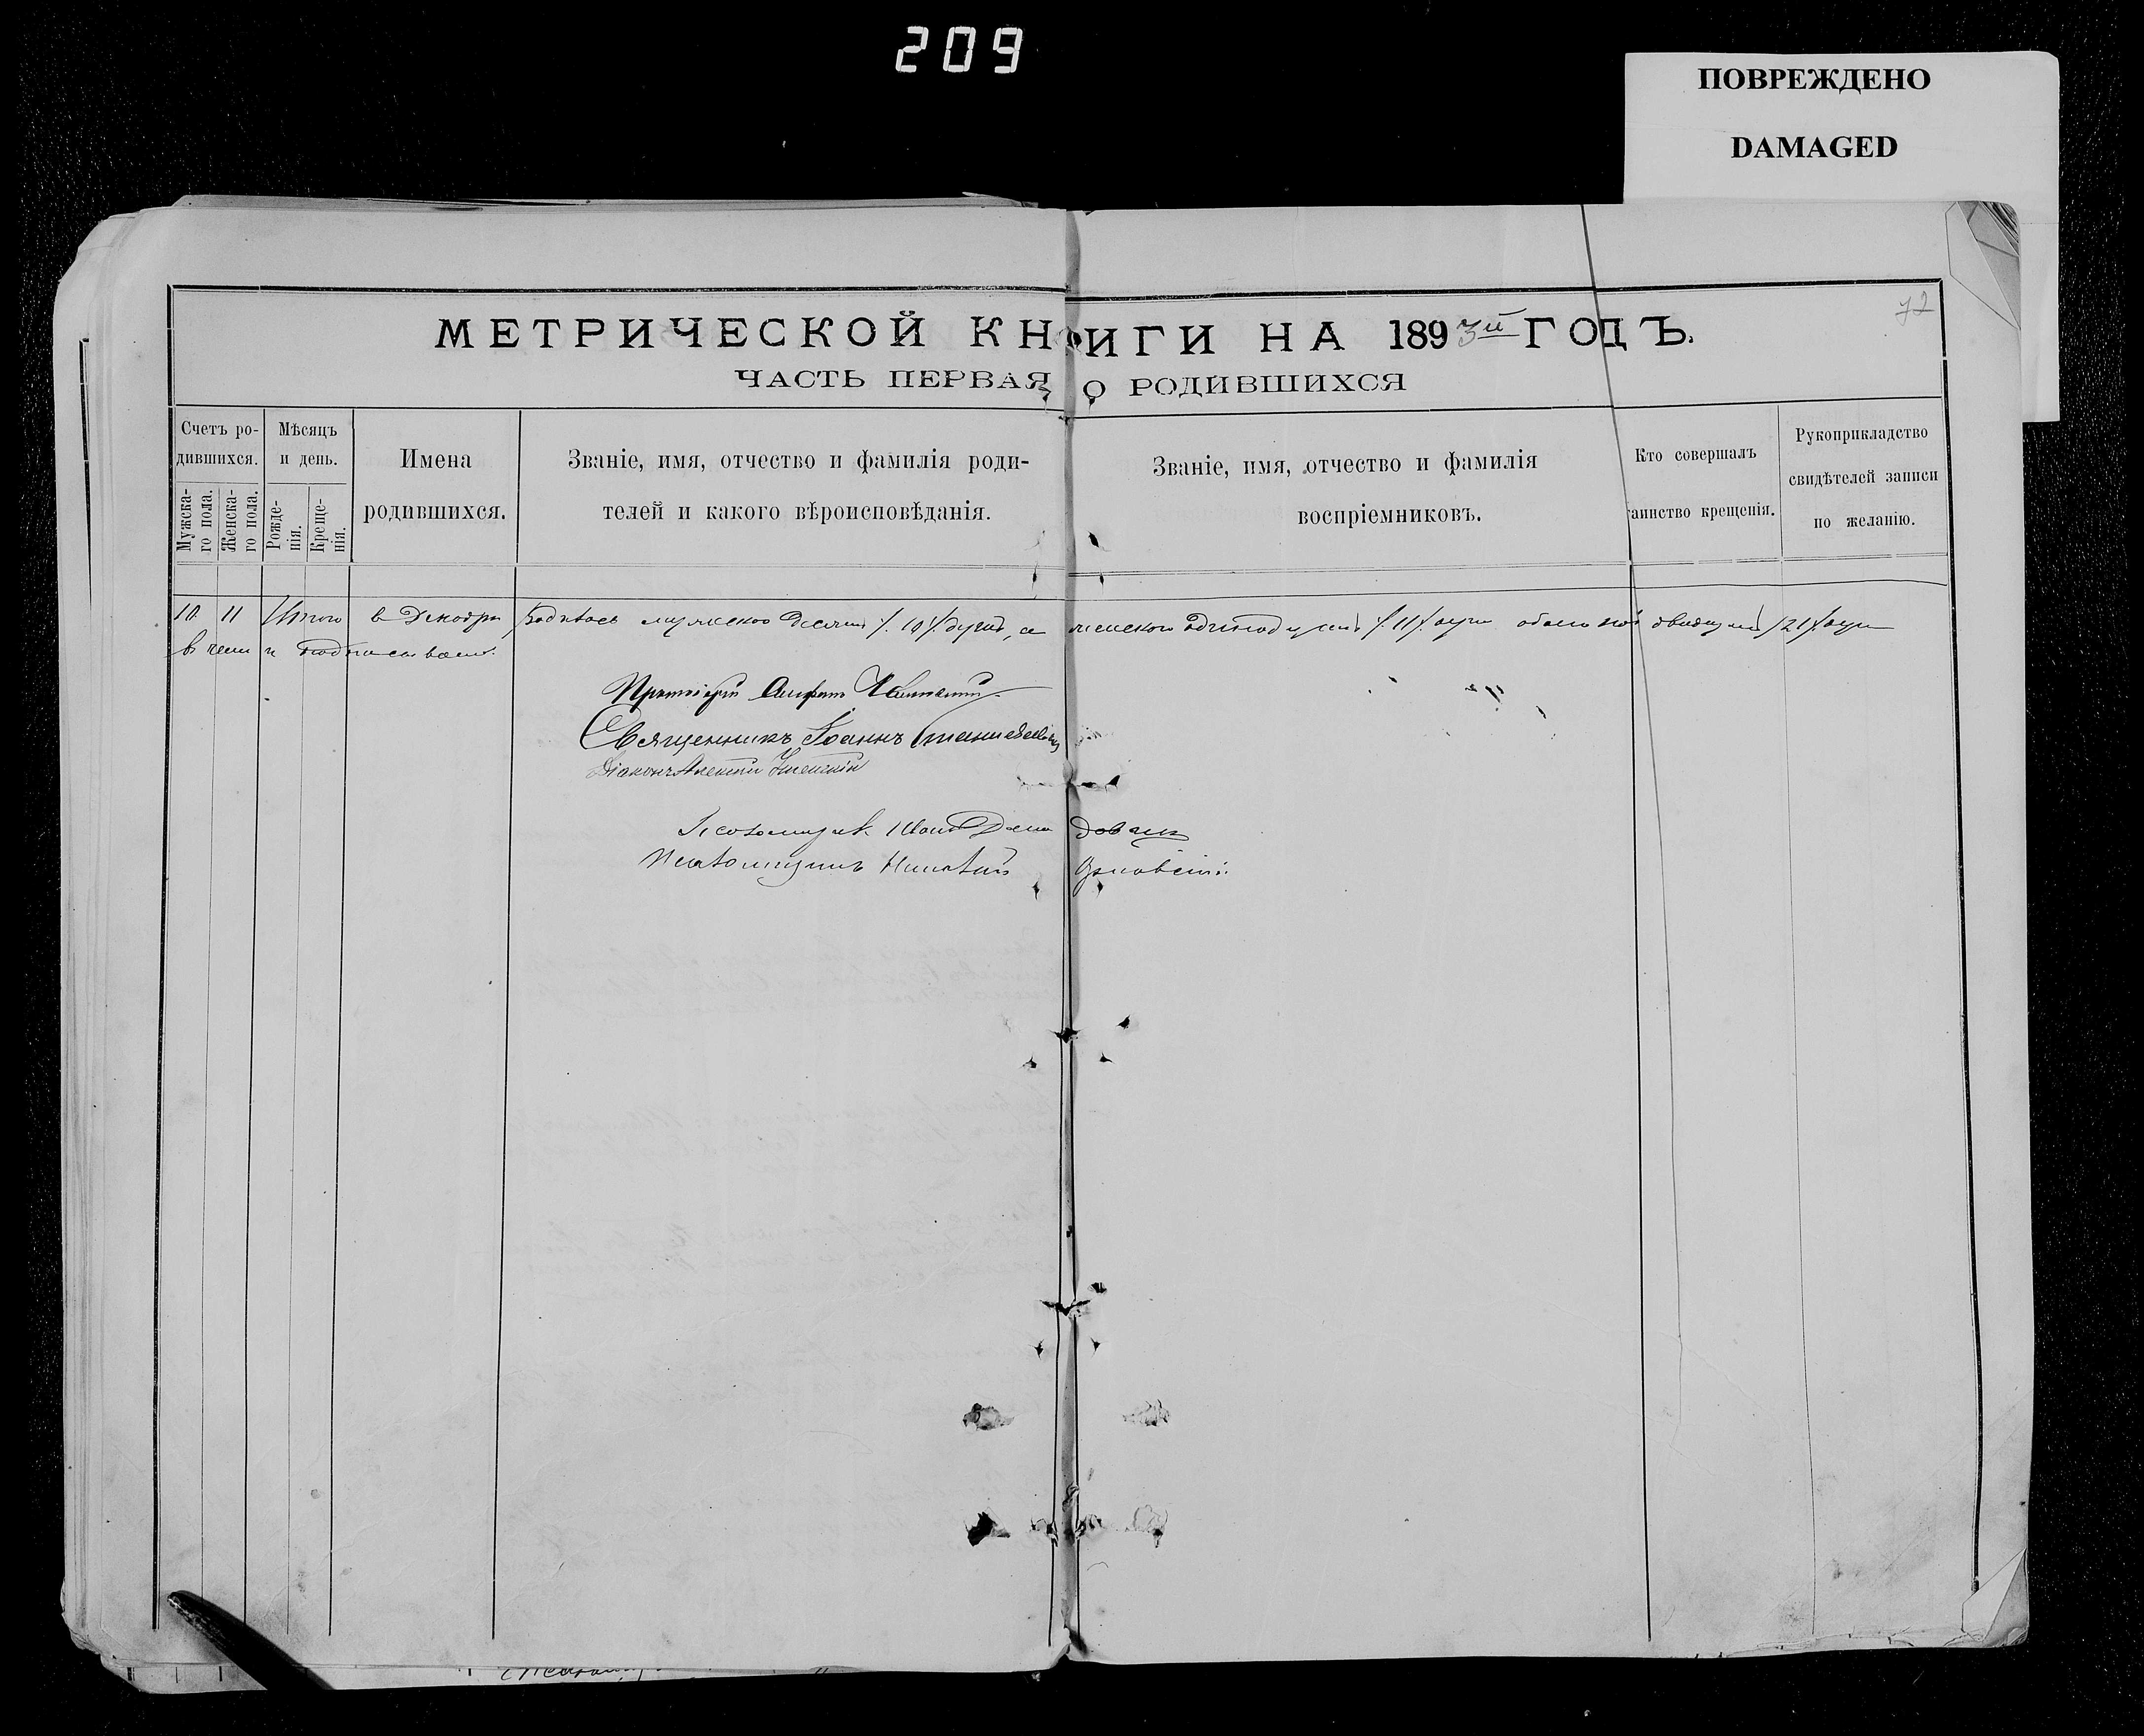 209
ПОВРЕЖДЕНО
DAMAGED
72
МЕТРИЧЕСКОЙ КНИГИ НА 1893й ГОДЪ.
ЧАСТЬ ПЕРВАЯ О РОДИВШИХСЯ
Счетъ ро-
дившихся.
Мужска-
го пола.
Женска-
го пола.
Мѣсяцъ
и день.
Рожде-
нія.
Креще-
нія.
Имена
родившихся.
Званіе, имя, отчество и фамилія роди-
телей и какого вѣроисповѣданія.
Званіе, имя, отчество и фамилія
воспріемниковъ.
Кто совершалъ
таинство крещенія.
Рукоприкладство
свидѣтелей записи
по желанію.
10 11 Итого в Декабри мужеского десять /.10/. душъ, а женского одинадцать /.11/. душ обоего /21/. душ
в чем и подписываемс.
Протоіерей
Священникъ Іоаннъ
Діаконъ Алексій
Псаломщик Иван
Псаломщикъ Николай